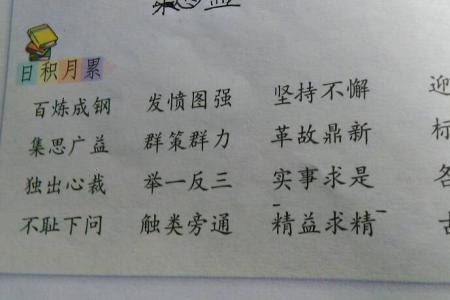 日积月累
百炼成钢 发愤图强 坚持不懈 迎
集思广益 群策群力 革故鼎新 标
独出心裁 举一反三 实事求是 各
不耻下问 触类旁通 精益求精